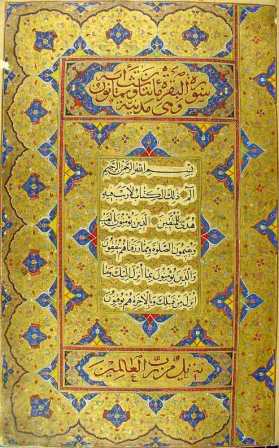 سورة البقرة مائتان وست وثمانون اية
وهي مدنية
بسم الله الرحمن الرحيم
الم ذلك الكتاب لا ريب فيه
هدى للمتقين الذين يؤمنون بالغيب
ويقيمون الصلوة ومما رزقناهم ينفقون
والذين يؤمنون بما انزل اليك وما
انزل من قبلك وبالاخرة هم يوقنون
تنزيل من رب العالمين